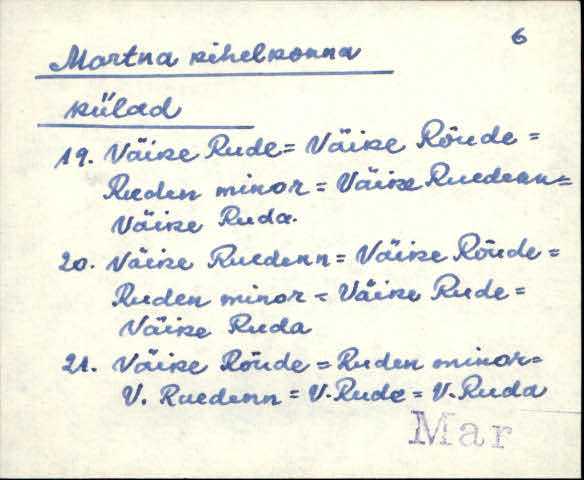 6
Martna kihelkonna
külad
19. Väike Rude = Väike Rõude =
Rueden minor = Väike Ruedenn =
Väike Ruda.
20. Väike Ruedenn = Väike Rõude =
Ruden minor = Väike Rude =
Väike Ruda
21. Väike Rõude = Ruden minor =
V. Ruedenn = V. Rude = V. Ruda
Mar